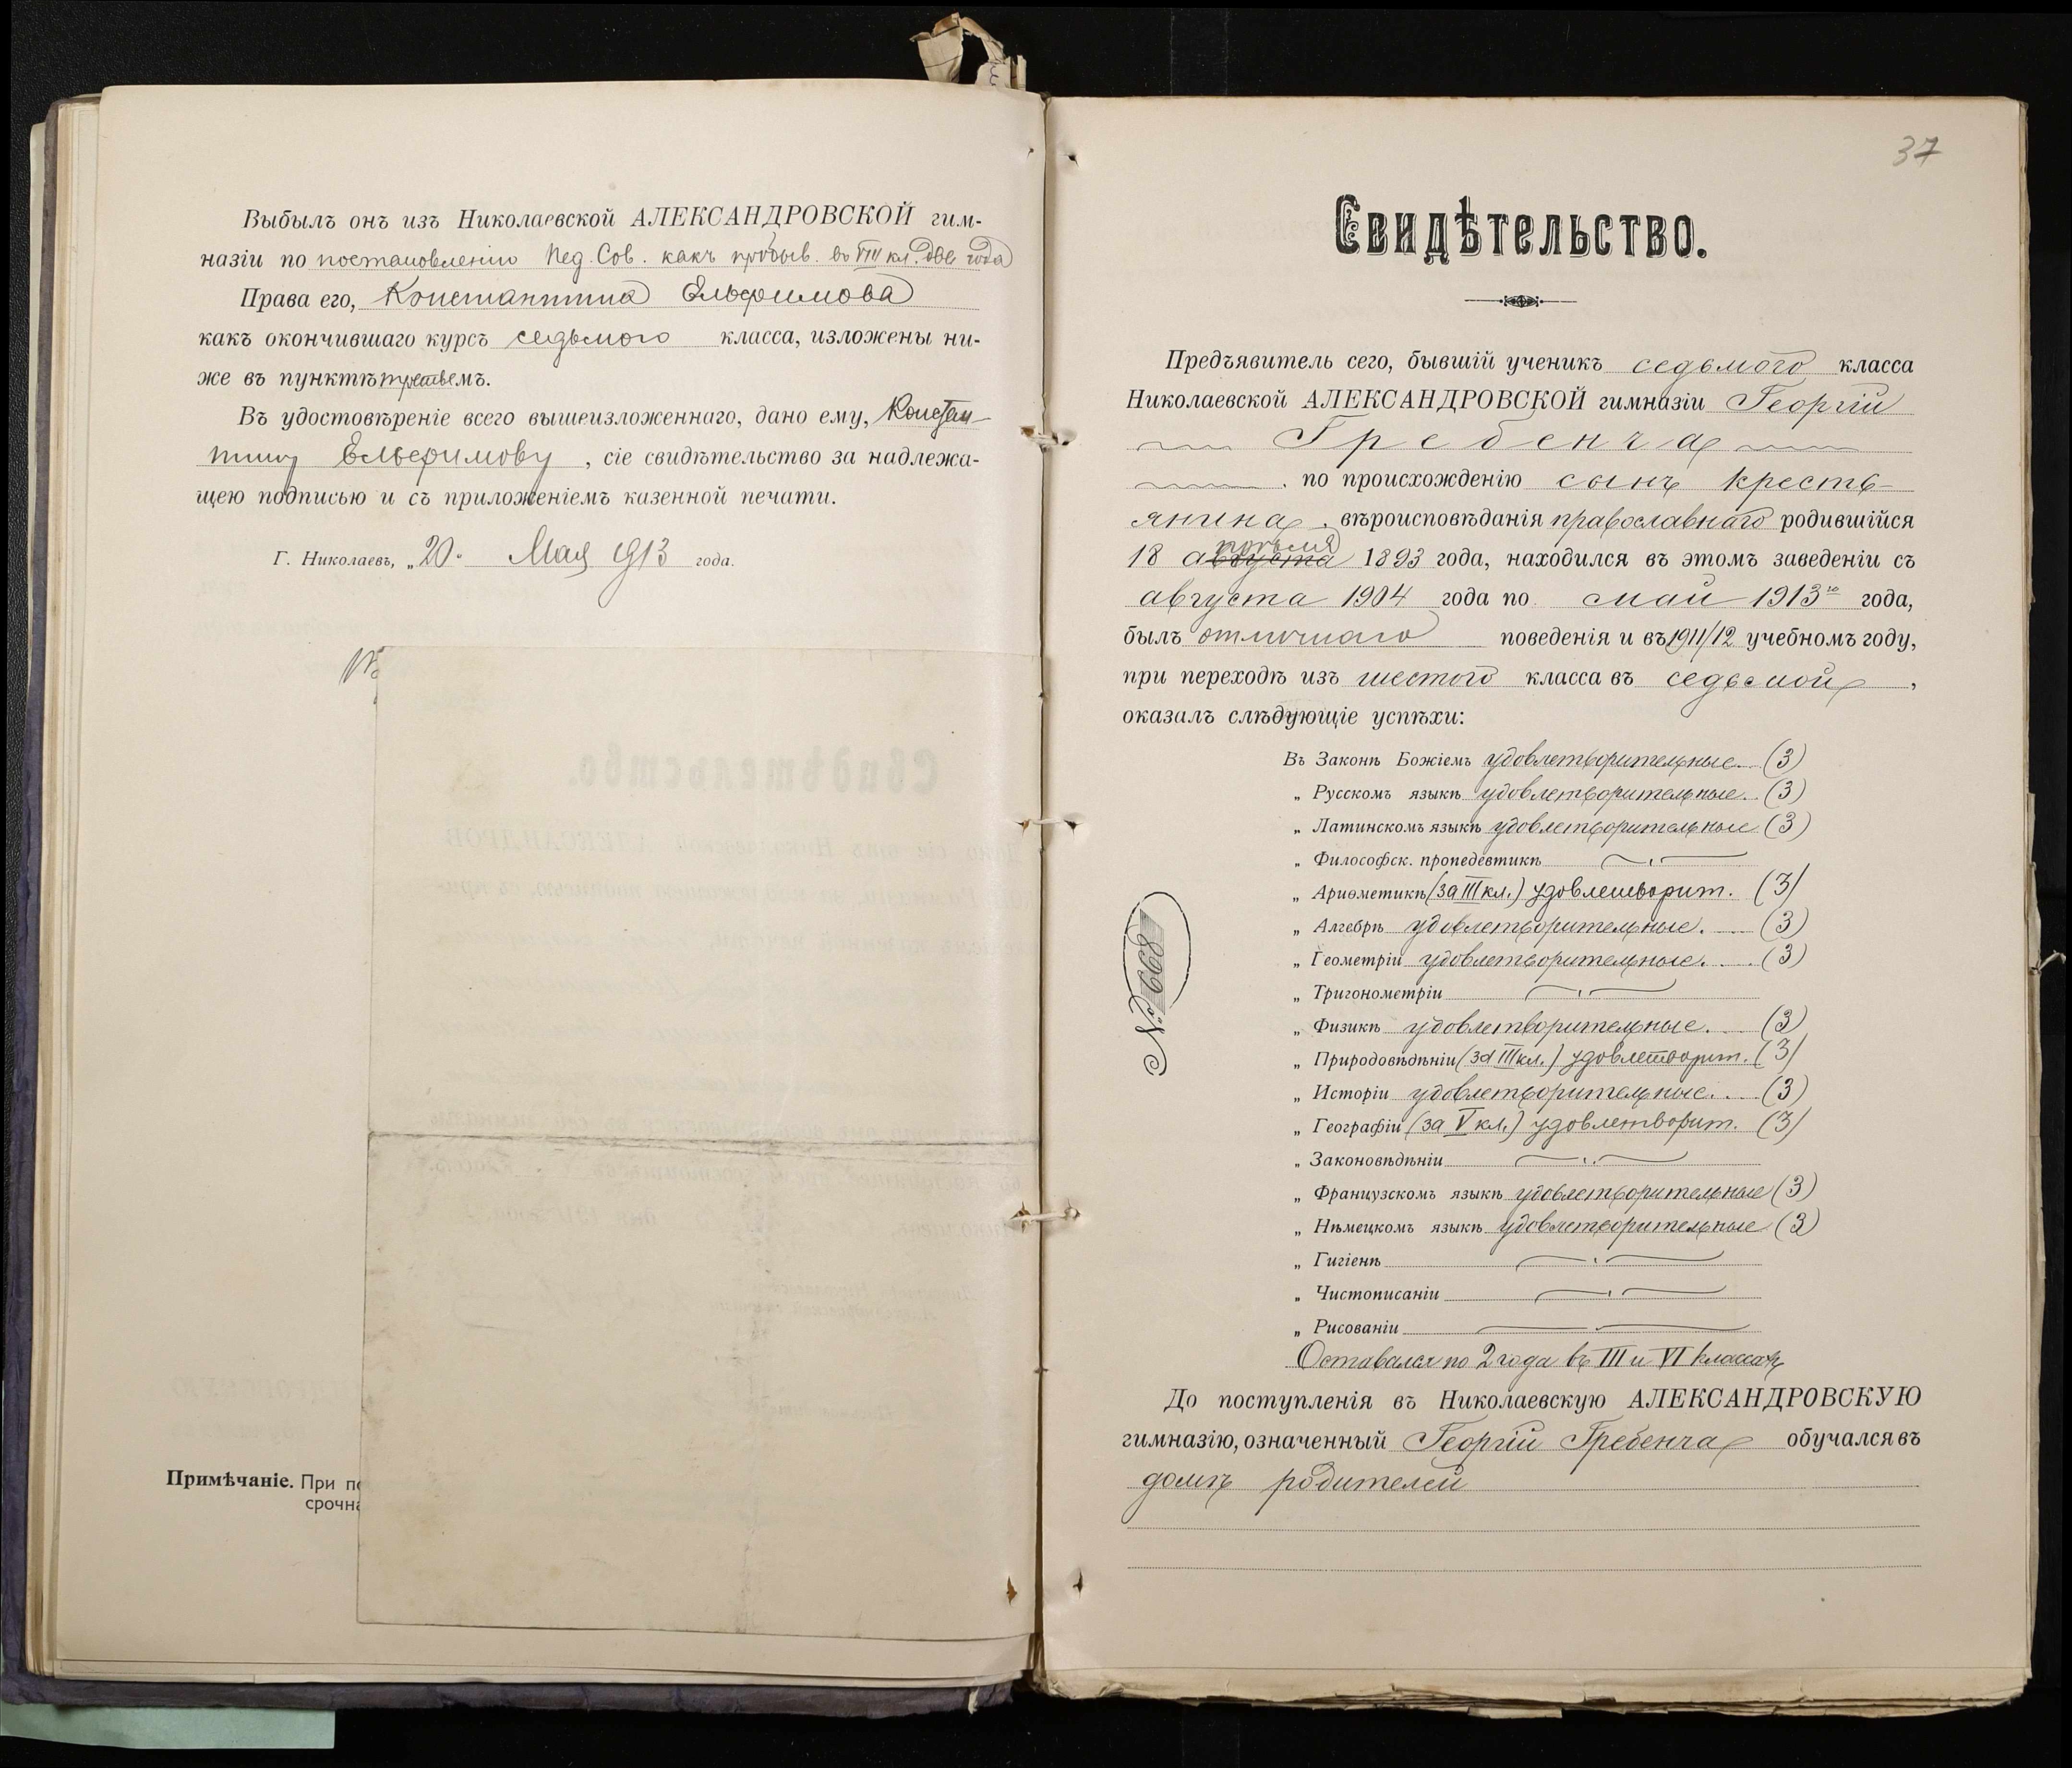 Выбылъ онъ изъ Николаевской АЛЕКСАНДРОВСКОЙ гим-
назіи по постановленію Пед. Сов. какъ пробыв. въ VIII кл. две года
Права его, Константина Ельфимова
какъ окончившаго курсъ седьмого класса, изложены ни-
же въ пунктѣ третьемъ.
Въ удостовѣреніе всего вышеизложеннаго, дано ему, Констан-
тину Ельфимову, сіе свидѣтельство за надлежа-
щею подписью и съ приложеніемъ казенной печати.
Г. Николаевъ, „20. Мая 1913 года.
№
Примѣчаніе. При по
срочна
37
Свидѣтельство.
Предъявитель сего, бывшій ученикъ седьмого класса
Николаевской АЛЕКСАНДРОВСКОЙ гимназіи Георгій
Гребенча
по происхожденію сынъ кресть-
янина, вѣроисповѣданія православнаго родившійся
18 августа 1893 года, находился въ этомъ заведеніи съ
августа 1904 года по май 1913го года,
былъ отличнаго поведенія и въ 1911/12 учебномъ году,
при переходѣ изъ шестого класса въ седьмой,
оказалъ слѣдующіе успѣхи:
Въ Законѣ Божіемъ удовлетворительные. (3)
„ Русскомъ языкѣ удовлетворительные. (3)
„ Латинскомъ языкѣ удовлетворительные (3)
„ Философск. пропедевтикѣ
„ Ариѳметикѣ (за III кл.) удовлетворит. (3)
„ Алгебрѣ удовлетворительные. (3)
„ Геометріи удовлетворительные. (3)
„ Тригонометріи
„ Физикѣ удовлетворительные. (3)
„ Природовѣдѣніи (за III кл.) удовлетворит. (3)
„ Исторіи удовлетворительные. (3)
„ Географіи (за V кл.) удовлетворит. (3)
„ Законовѣдѣніи
„ Французскомъ языкѣ удовлетворительные (3)
„ Нѣмецкомъ языкѣ удовлетворительные (3)
„ Гигіенѣ
„ Чистописаніи
„ Рисованіи
Оставался по 2 года въ III и VI классах
До поступленія въ Николаевскую АЛЕКСАНДРОВСКУЮ
гимназію, означенный Георгій Гребенча обучался въ
домѣ родителей
№ 668